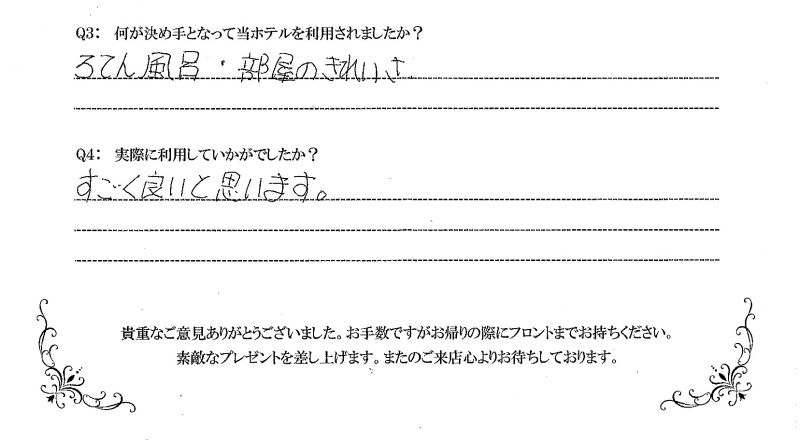 Q3: 何が決め手となって当ホテルを利用されましたか？
ろてん風呂・部屋のきれいさ
Q4: 実際に利用していかがでしたか？
すごく良いと思います。
貴重なご意見ありがとうございました。お手数ですがお帰りの際にフロントまでお持ちください。
素敵なプレゼントを差し上げます。またのご来店心よりお待ちしております。